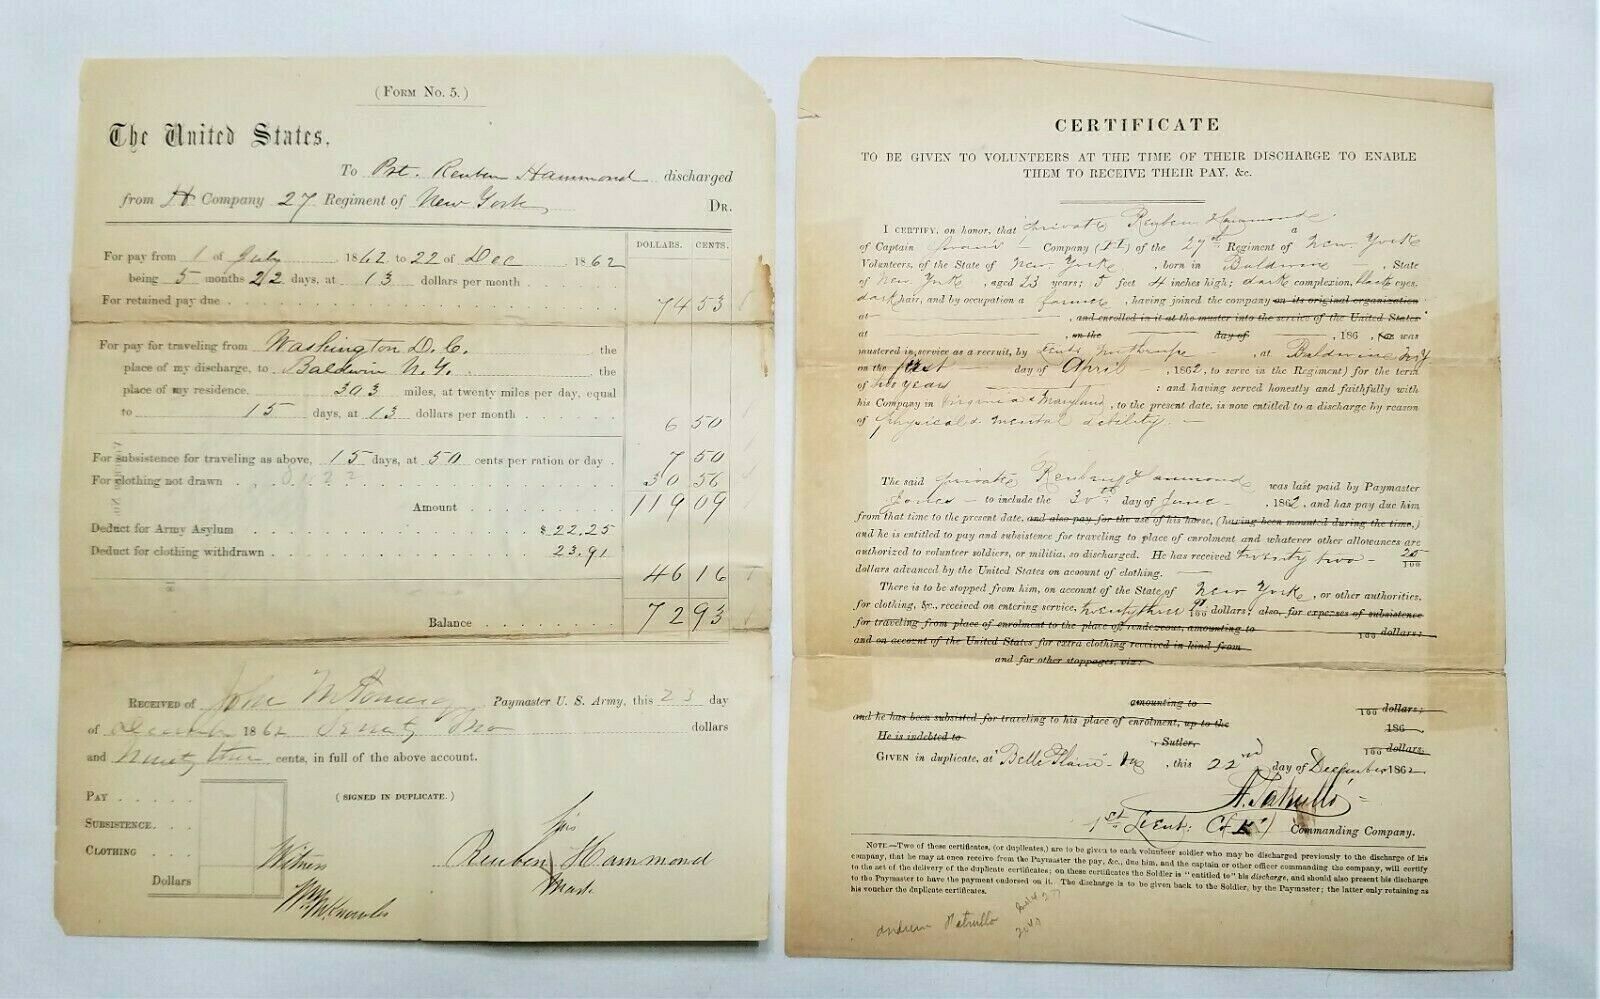 (FORM NO. 5.)
The United States,
To Pvt. Reuben Hammond discharged
from H Company 27 Regiment of New York DR.
DOLLARS. CENTS.
For pay from 1 of July 1862 to 22 of Dec 1862
being 5 months 22 days, at 13 dollars per month
For retained pay due 74 53
For pay for traveling from Washington D.C. the
place of my discharge, to Baldwin N.Y. the
place of my residence. 303 miles, at twenty miles per day, equal
to 15 days, at 13 dollars per month
6 50
For subsistence for traveling as above, 15 days, at 50 cents per ration or day 7 50
For clothing not drawn 30 56
Amount 119 09
Deduct for Army Asylum $22.25
Deduct for clothing withdrawn 23.91
46 16
Balance 72 93
RECEIVED of John Paymaster U. S. Army, this 23 day
of December 1862 Seventy Two dollars
and Ninety three cents, in full of the above account.
PAY
(SIGNED IN DUPLICATE.)
SUBSISTENCE
CLOTHING
Dollars
his
Reuben X Hammond
mark
Witness
Wm. Knowles
CERTIFICATE
TO BE GIVEN TO VOLUNTEERS AT THE TIME OF THEIR DISCHARGE TO ENABLE
THEM TO RECEIVE THEIR PAY, &c.
I CERTIFY, on honor, that private Reuben Hammond a
of Captain Company (H) of the 27th Regiment of New York
Volunteers, of the State of New York, born in Baldwin, State
of New York, aged 23 years; 5 feet 4 inches high; dark complexion, black eyes,
dark hair, and by occupation a farmer, having joined the company on its original organization
at , and enrolled in it at the muster into the service of the United States
at on the day of , 186 , (or was
mustered in service as a recruit, by Lieut. Northrope, at Baldwin N.Y
on the first day of April, 1862, to serve in the Regiment) for the term
of two years : and having served honestly and faithfully with
his Company in Virginia & Maryland, to the present date, is now entitled to a discharge by reason
of physical & mental debility.
The said private Reuben Hammond was last paid by Paymaster
Jones to include the 30th day of June 1862, and has pay due him
from that time to the present date, and also pay for the use of his horse, (having been mounted during the time,)
and he is entitled to pay and subsistence for traveling to place of enrolment and whatever other allowances are
authorized to volunteer soldiers, or militia, so discharged. He has received twenty two 25/100
dollars advanced by the United States on account of clothing.
There is to be stopped from him, on account of the State of New York, or other authorities,
for clothing, &c., received on entering service, twenty three 91/100 dollars; also, for expenses of subsistence
for traveling from place of enrolment to the place of rendezvous, amounting to 100 dollars;
and on account of the United States for extra clothing received in kind from
and for other stoppages, viz:
amounting to 100 dollars;
and he has been subsisted for traveling to his place of enrolment, up to the 186
He is indebted to , Sutler, 100 dollars.
GIVEN in duplicate, at Belle Plain Va, this 22nd day of December 1862
A. Patrullo
1st Lieut: Commanding Company.
NOTE.—Two of these certificates, (or duplicates,) are to be given to each volunteer soldier who may be discharged previously to the discharge of his
company, that he may at once receive from the Paymaster the pay, &c., due him, and the captain or other officer commanding the company, will certify
to the act of the delivery of the duplicate certificates; on these certificates the Soldier is "entitled" to his discharge, and should also present his discharge
to the Paymaster to have the payment endorsed on it. The discharge is to be given back to the Soldier, by the Paymaster; the latter only retaining as
his voucher the duplicate certificates.
Andrew Patrullo